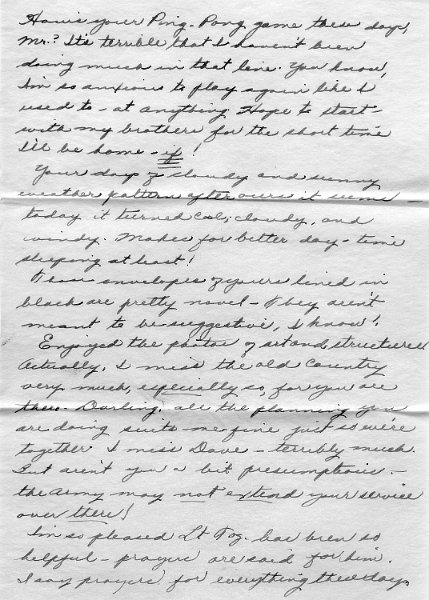 How's your Ping-Pong game these days,
Mr.? It's terrible that I haven't been
doing much in that line. You know,
I'm so anxious to play again like I
used to - at anything. Hope to start
with my brothers for the short time
I'll be home - if!
Your day of cloudy and sunny
weather pattern after ours it seems -
today it turned cool, cloudy, and
windy. Makes for better day-time
sleeping at least!
Those envelopes of yours lined in
black are pretty novel - they aren't
meant to be suggestive, I know!
Enjoyed the photos of art and structures.
Actually, I miss the old country
very much, especially so, for you are
there. Darling, all the planning you
are doing suits me fine just so we're
together. I miss Dave - terribly much.
But aren't you a bit presumptious -
the Army may not extend your service
over there!
I'm so pleased Lt. has been so
helpful - prayers are said for him.
I say prayers for everything these days.